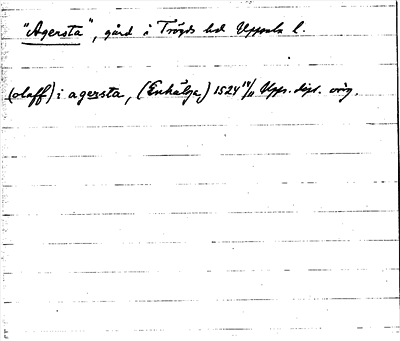 "Agersta", gård i Trögds hd Uppsala l.
(olaff) i agersta, (Enhälga) 1524 14/11 Upps. dipl. orig.